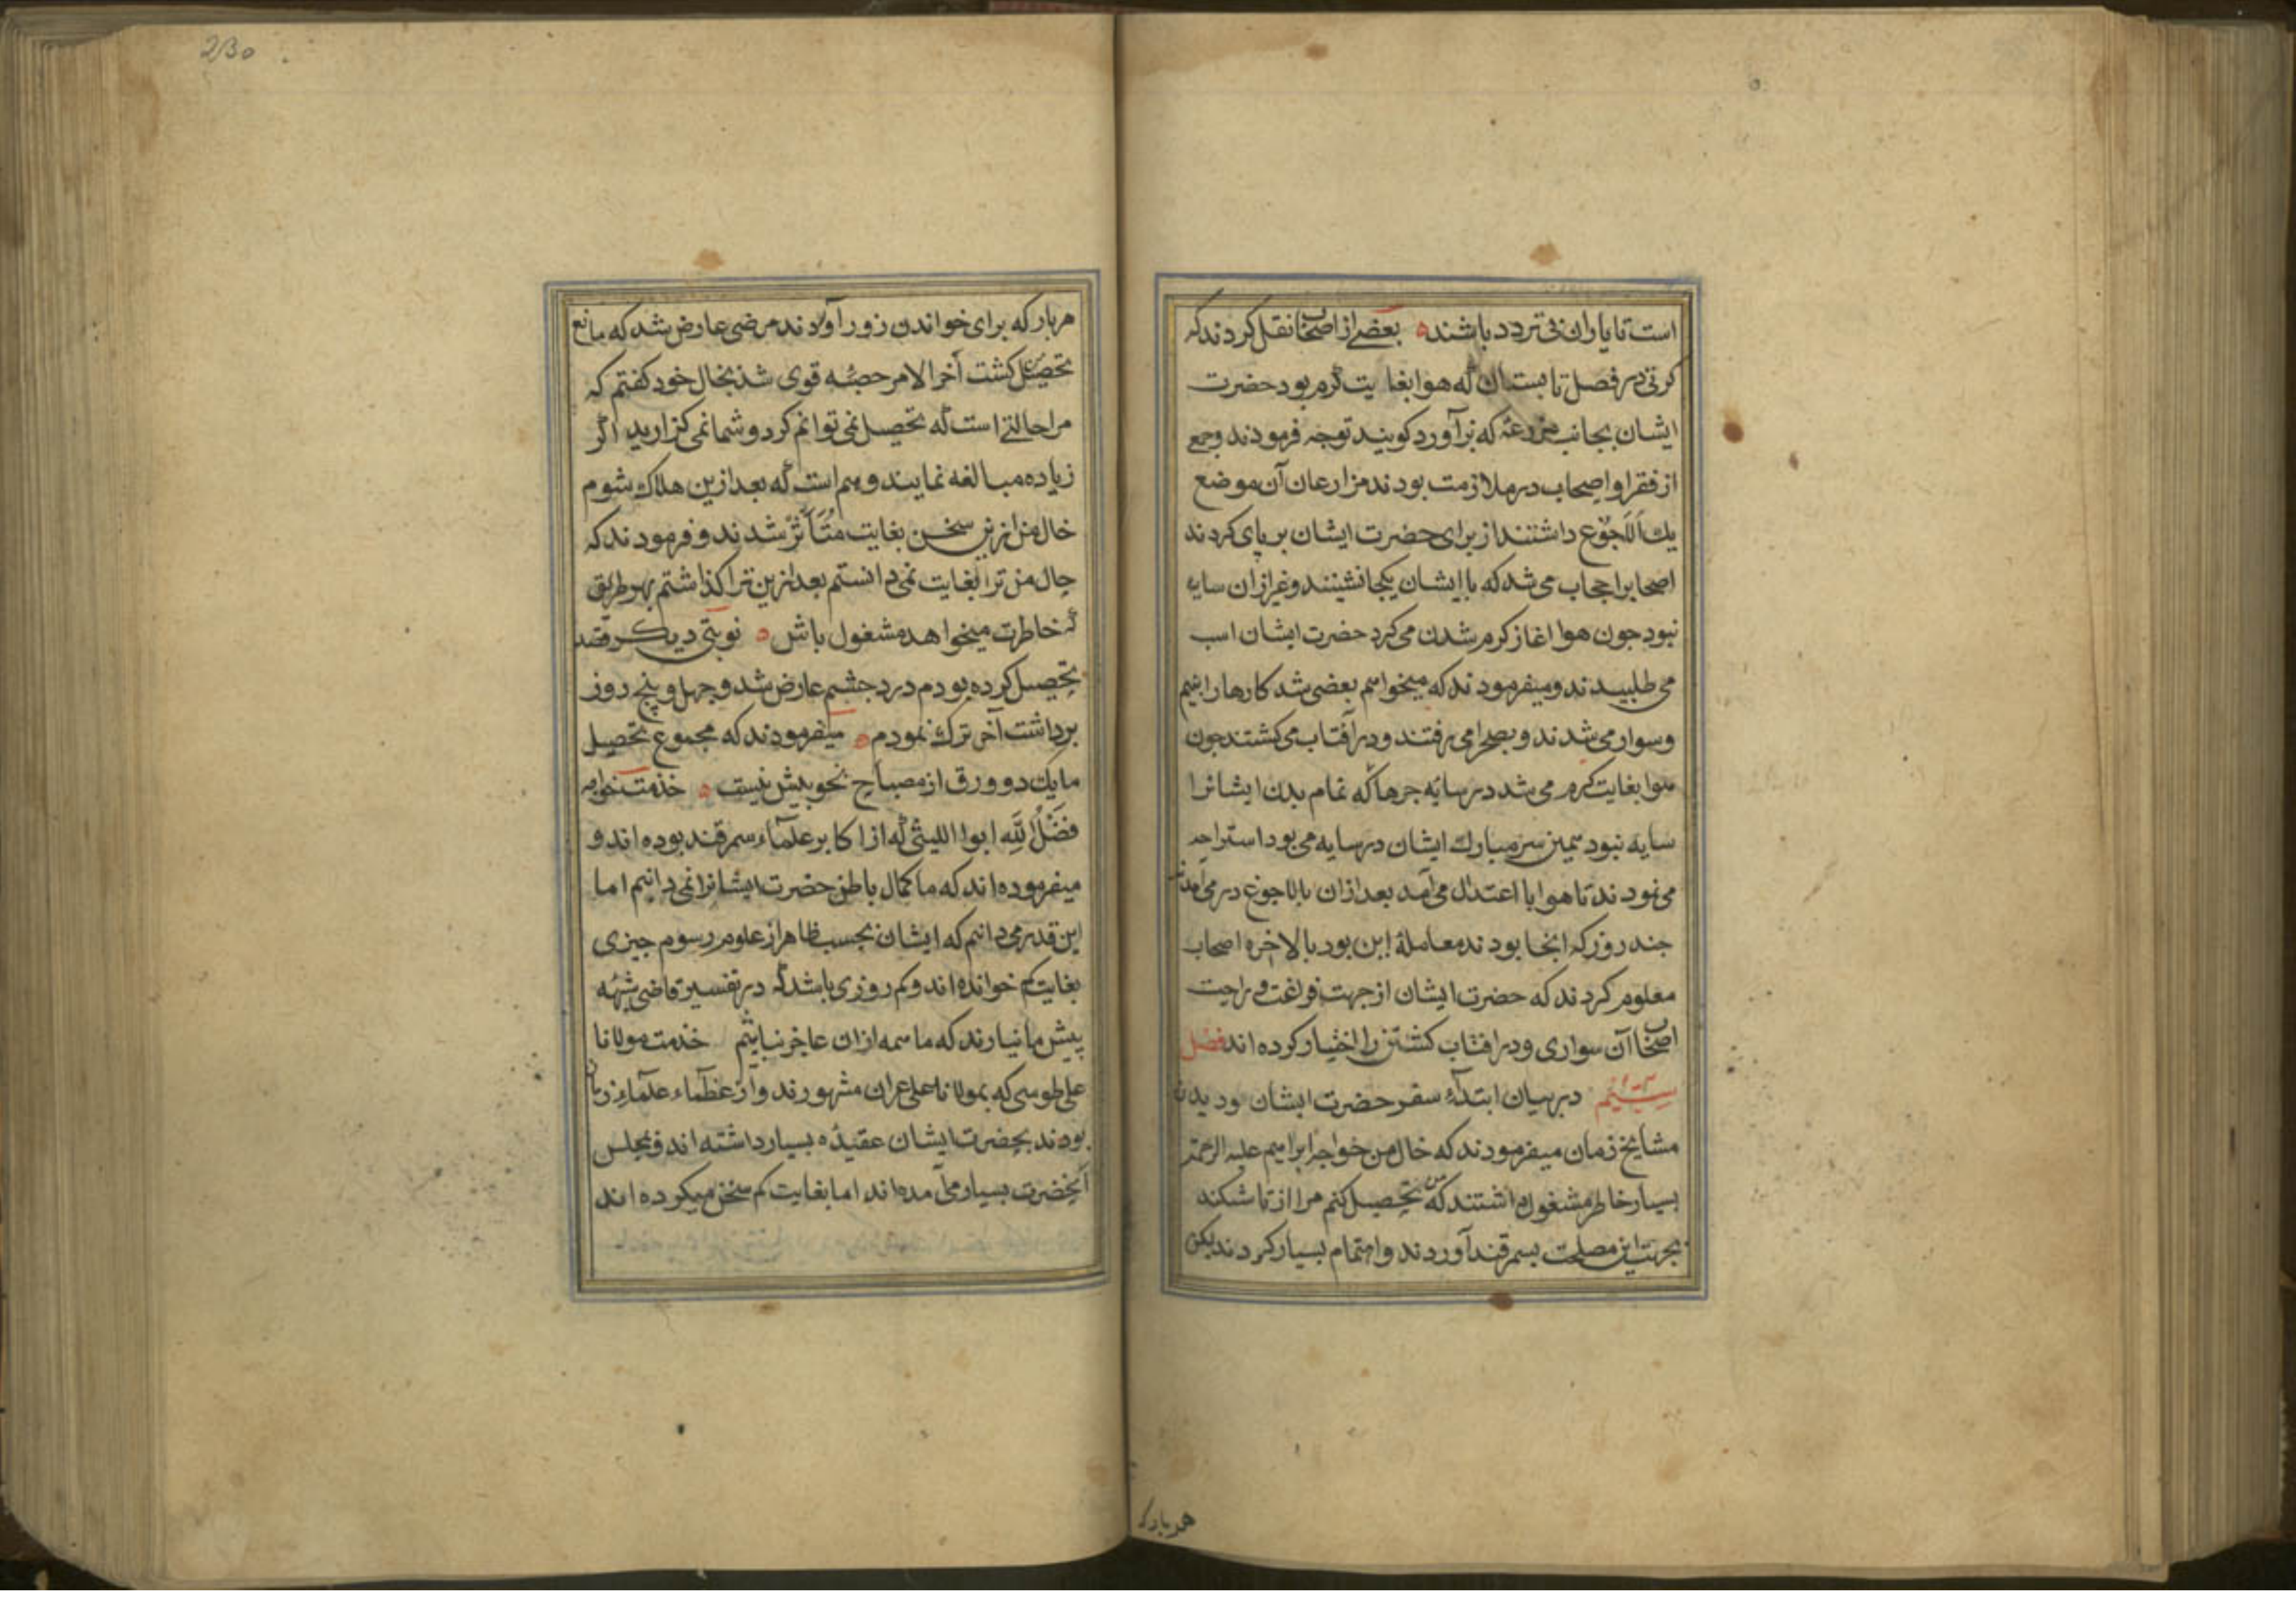 است تا یاران بی تردد باشند ه بعضی از اصحاب نقل کردند که
کرتی در فصل تابستان که هوا بغایت گرم بود حضرت
ایشان بجانب مزرعهٔ که برآورد کویند توجه فرمودند و جمعی
از فقرا و اصحاب در ملازمت بودند مزارعان آن موضع
یك الاجوغ داشتند از برای حضرت ایشان بر پای کردند
اصحابرا حجاب می شد که با ایشان یکجا نشینند و غیر از ان سایه
نبود جون هوا اغاز کرم شدن می کرد حضرت ایشان اسب
می طلبیدند و میفرمودند که میخواهم بعضی شد کارها را بینم
و سوار می شدند و بصحرا می رفتند و در آفتاب می کشتند جون
هوا بغایت کرم می شد در سایه جرها که تمام بدن ایشانرا
سایه نبود همین سر مبارك ایشان در سایه می بود استراحه
می نمودند تا هوا با اعتدال می آمد بعد ازان بالاجوغ در می آمدند
جند روز که انجا بودند معاملهٔ این بود بالاخره اصحاب
معلوم کردند که حضرت ایشان از جهت فراغت و راحت
اصحاب آن سواری و در افتاب کشتن را اختیار کرده اند فصل
سیم در بیان ابتداء سفر حضرت ایشان و دیدن
مشایخ زمان میفرمودند که خال من خواجه ابراهیم علیه الرحمة
بسیار خاطر مشغول داشتند که من تحصیل کنم مرا از تاشکند
بجهت این مصلحت بسمرقند آوردند و اهتمام بسیار کردند لیکن
هر بار که
230
هر بار که برای خواندن زور آوردند مرضی عارض شد که مانع
تحصیل من کشت آخر الامر حصبه قوی شد بخال خود کفتم که
مرا حالتی است که تحصیل نمی توانم کرد و شما نمی کزارید اگر
زیاده مبالغه نمایند وهم است که بعد ازین هلاك شوم
خال من ازین سخن بغایت متأثر شدند و فرمودند که
حال من ترا بغایت نمی دانستم بعد ازین ترا کذاشتم بهر طریق
که خاطرت میخواهد مشغول باش ه نوبتی دیکر قصد
تحصیل کرده بودم درد جشم عارض شد و جهل و پنج روز
برداشت آخر ترك نمودم ه میفرمودند که مجموع تحصیل
ما یك دو ورق از مصباح نحو بیش نیست ه خذمت خواجه
فضل الله ابوا اللیثی که از اکابر علمآء سمرقند بوده اند و
میفرموده اند که ما کمال باطن حضرت ایشانرا نمی دانیم اما
این قدر می دانیم که ایشان بحسب ظاهر از علوم رسوم جیزی
بغایت کم خوانده اند و کم روزی باشد که در تفسیر قاضی شبهه
پیش ما نیارند که ما همه ازان عاجز نیاییم خذمت مولانا
علی طوسی که بمولانا علی عران مشهورند و از عظمآء علمآء زمان
بودند بحضرت ایشان عقیده بسیار داشته اند و بمجلس
آنحضرت بسیار می آمده اند اما بغایت کم سخن میکرده اند